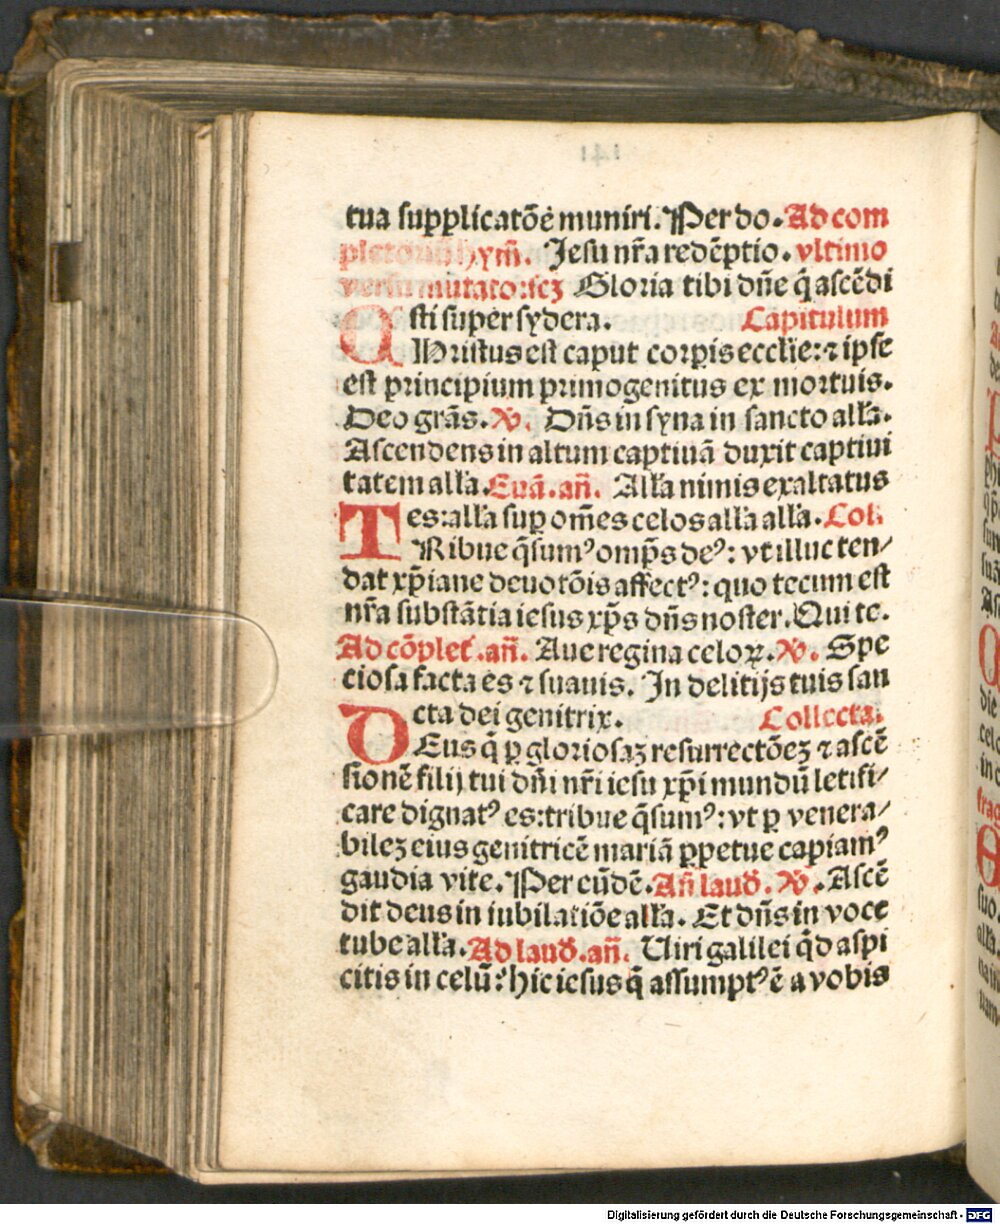 tua supplicatōē muniri. Per do. Ad com
pletoriū hym̄. Jesu nr̄a redēptio. vltimo
versu mutato: scꝫ Gloria tibi dn̄e q̄ ascēdi
sti super sydera. Capitulum
CHristus est caput corpis ecclie: ⁊ ipse
est principium primogenitus ex mortuis.
Deo grās. ℣. Dn̄s in syna in sancto alla.
Ascendens in altum captiuā duxit captiui
tatem alla. Euā. an̄. Alla nimis exaltatus
es: alla suꝑ om̄es celos alla alla. Col.
TRibue q̄sumꝰ omp̄s deꝰ: vt illuc ten/
dat xp̄iane deuotōis affectꝰ: quo tecum est
nr̄a substātia iesus xp̄s dn̄s noster. Qui tc.
Ad cōplet. an̄. Aue regina celoꝝ. ℣. Spe
ciosa facta es ⁊ suauis. In delitijs tuis san
cta dei genitrix. Collecta.
DEus q̄ ꝑ gloriosaꝫ resurrectōeꝫ ⁊ ascē
sionē filij tui dn̄i nr̄i iesu xp̄i mundū letifi/
care dignatꝰ es: tribue q̄sumꝰ: vt ꝑ venera/
bileꝫ eius genitricē mariā ꝑpetue capiamꝰ
gaudia vite. Per eūdē. An̄ laud̄. ℣. Ascē
dit deus in iubilatiōe alla. Et dn̄s in voce
tube alla. Ad laud̄. an̄. Uiri galilei q̄d aspi
citis in celū: hic iesus q̄ assumptꝰ ē a vobis
Digitalisierung gefördert durch die Deutsche Forschungsgemeinschaft - DFG